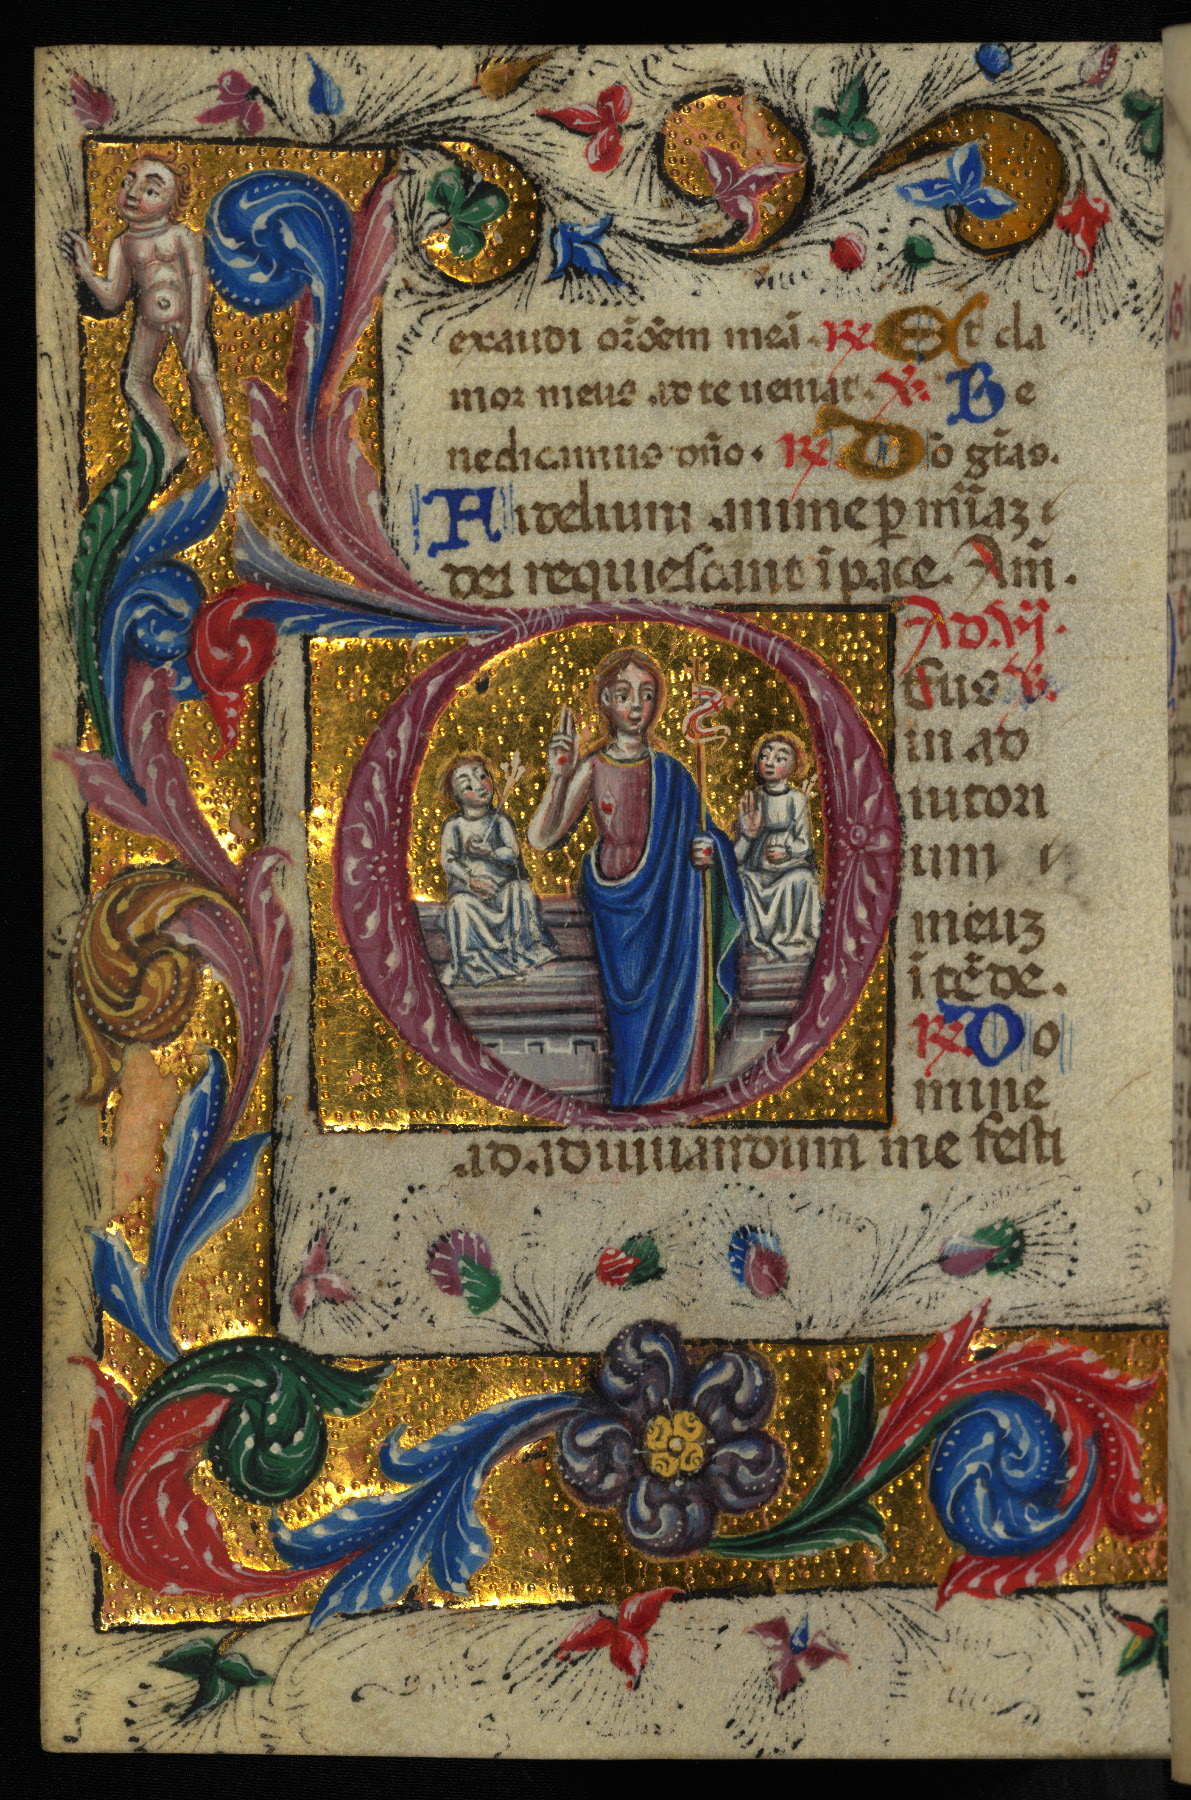 exaudi or̄oem meā. R̷ Et cla
mor meus ad te ueniat. V̷ Be
nedicamus dn̄o. R̷ Do gr̄as.
Fidelium anime p̲ mīaʒ
dei requiescant ī pace. Am̄.
Ad. vj.
Deus
in ad
iutori
um
meuʒ
ītēde.
R̷ Do
mine
ad adiuuandum me festi